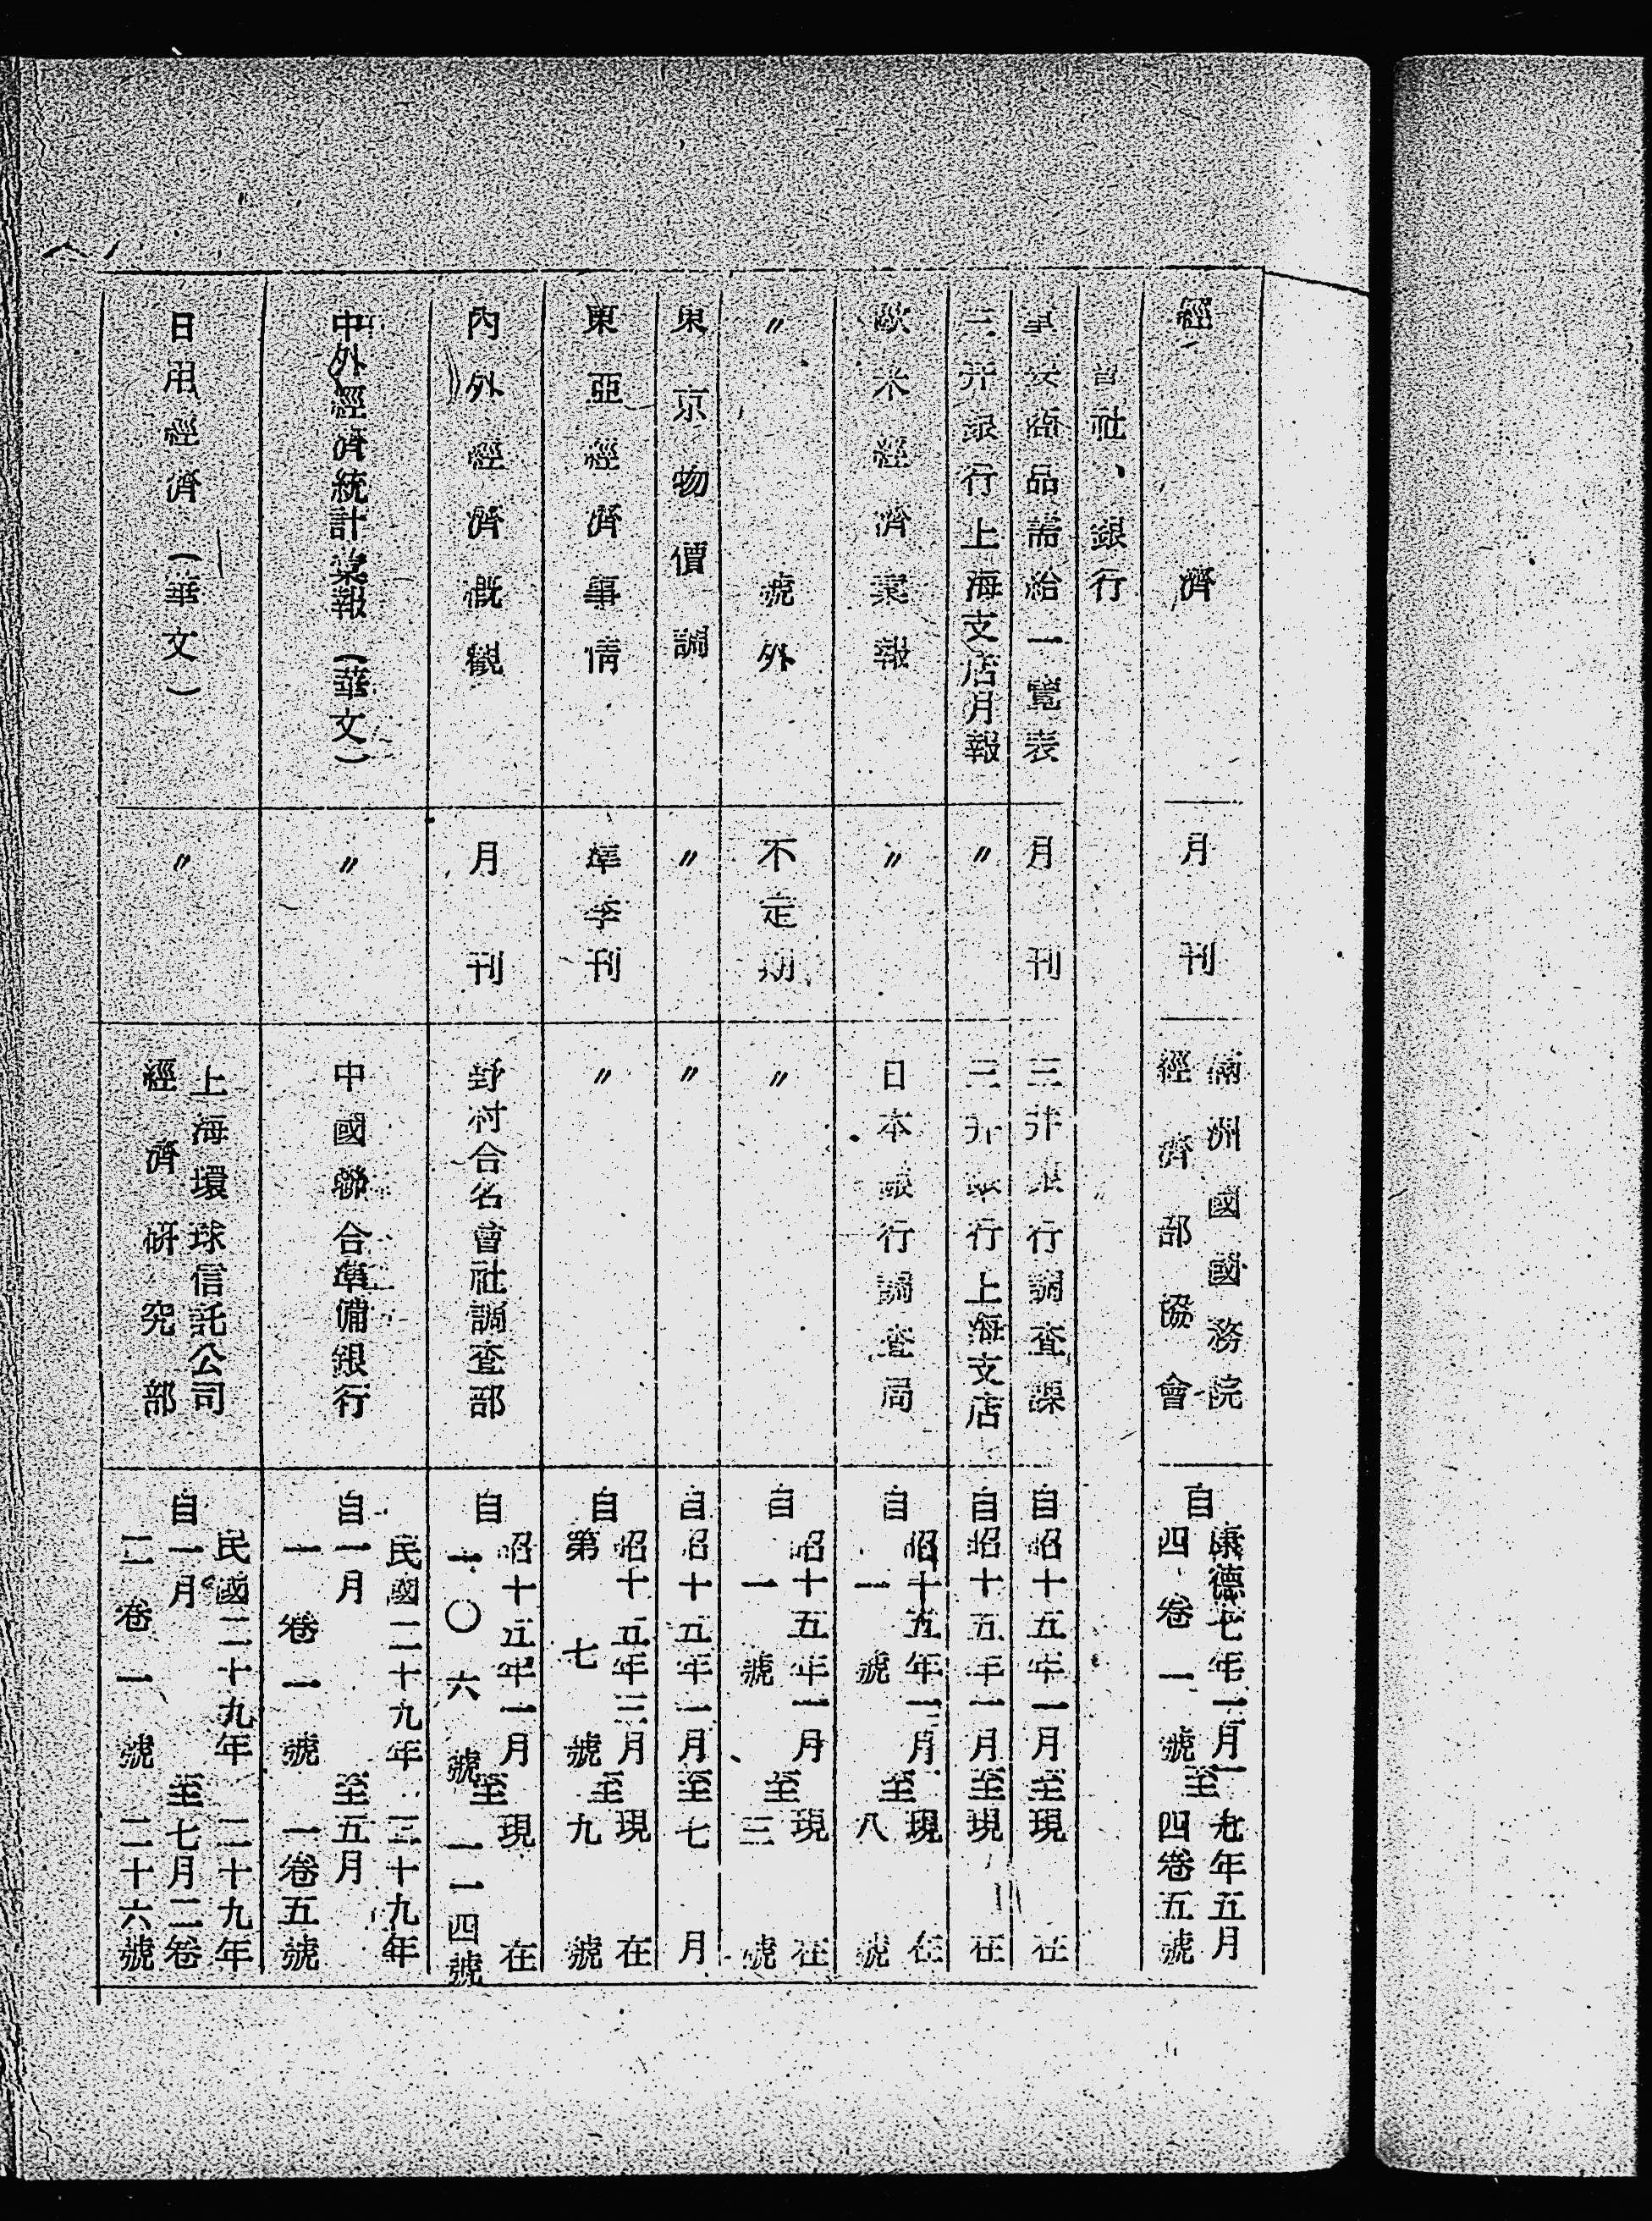 經濟
月刊
滿洲國國務院
經濟部協會
自康德七年一月四卷一號
至七年五月四卷五號
會社、銀行
重要商品需給一覽表
月刊
三井銀行調査課
自昭十五年一月至現在
三井銀行上海支店月報
〃
三井銀行上海支店
自昭十五年一月至現在
歐米經濟彙報
〃
日本銀行調査局
自昭十五年一月一號
至現在八號
〃號外
不定期
〃
自昭十五年一月一號
至現在三號
東京物價調
〃
〃
自昭十五年一月至七月
東亞經濟事情
準季刊
〃
自昭十五年三月第七號
至現在九號
內外經濟概觀
月刊
野村合名會社調査部
自昭十五年一月一〇六號
至現在一一四號
中外經濟統計彙報(華文)
〃
中國聯合準備銀行
自民國二十九年一月一卷一號
至二十九年五月一卷五號
日用經濟(華文)
〃
上海環球信託公司
經濟研究部
自民國二十九年一月二卷一號
至二十九年七月二卷二十六號